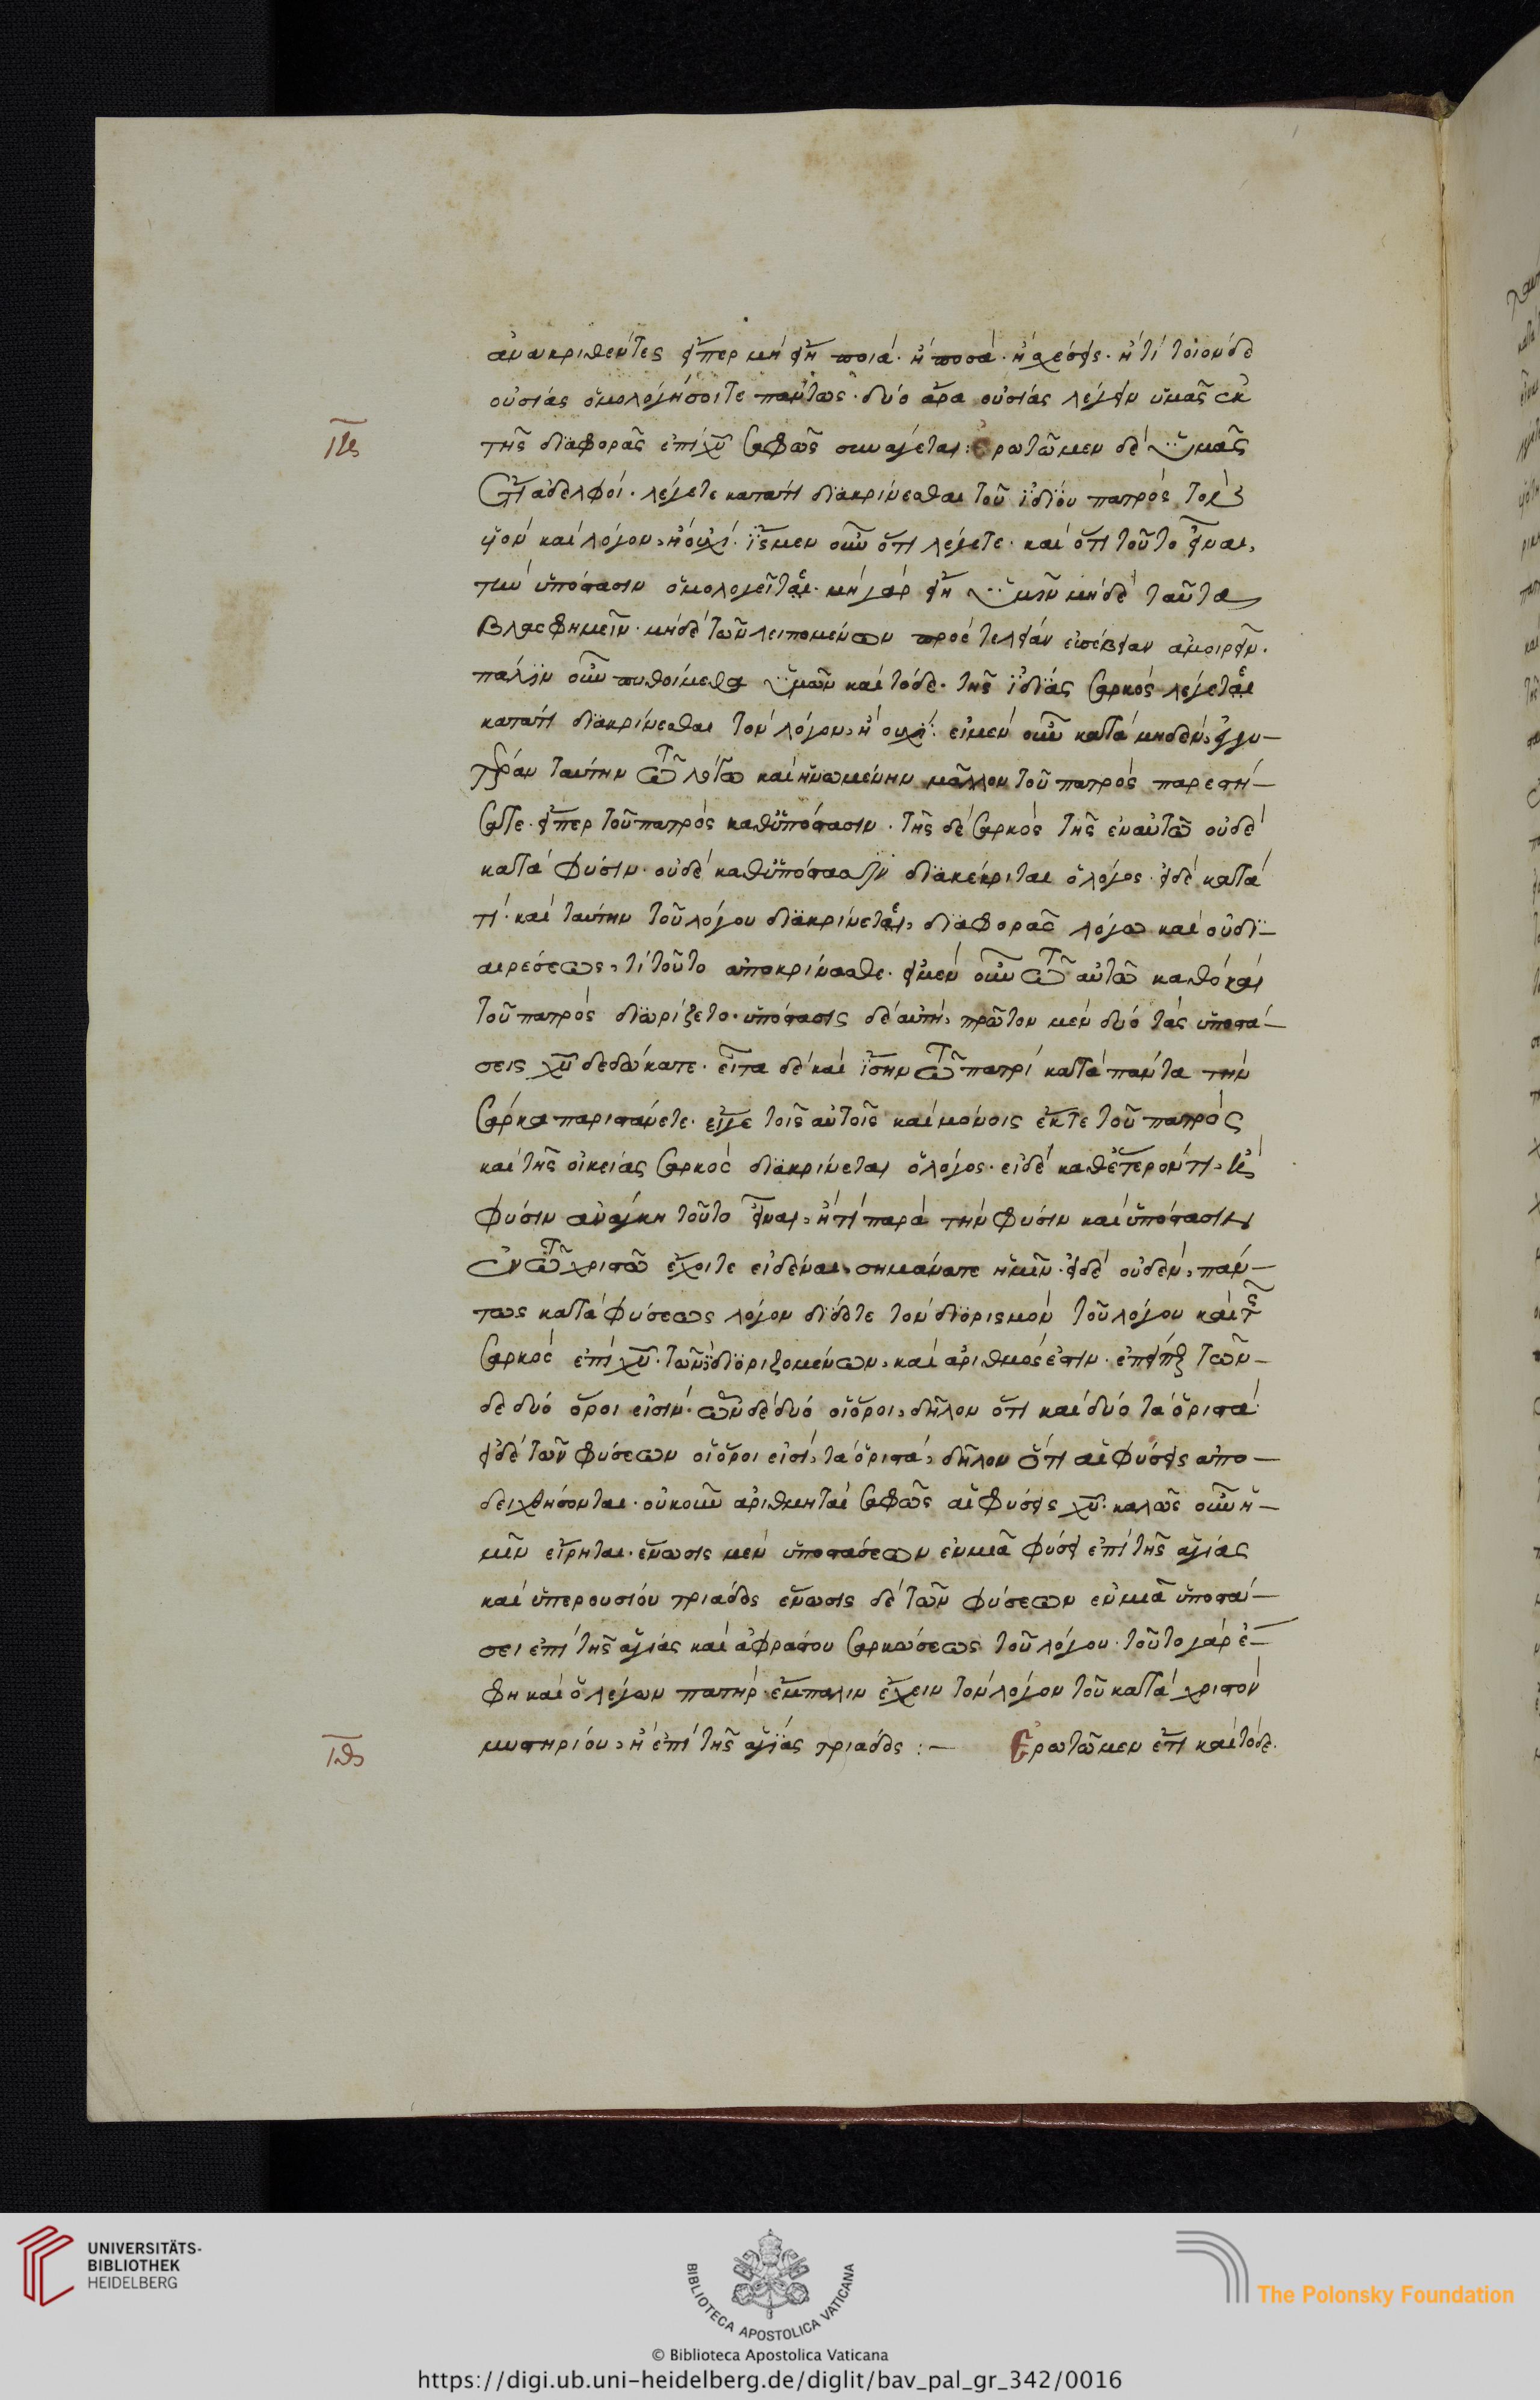 ἀνακριθέντες εἴπερ μὴ εἴη ποιά. ἢ ποσά. ἢ σχέσεις. ἤ τι τοιόνδε
οὐσίας ὁμολογήσοιτε πάντως. δύο ἄρα οὐσίας λέγειν ὑμᾶς ἐκ
ιη
τῆς διαφορᾶς ἐπὶ χυ σαφῶς συνάγεται: Ἐρωτῶμεν δὲ ὑμᾶς
ἔτι ἀδελφοί. λέγετε κατά τι διακρίνεσθαι τοῦ ἰδίου πατρὸς τὸν
λόγον, ἢ οὐχί. ἴσμεν οὖν ὅτι λέγετε. καὶ ὅτι τοῦτο εἶναι,
τὴν ὑπόστασιν ὁμολογεῖται. μὴ γὰρ εἴη ὑμῖν μηδὲ ταῦτα
βλασφημεῖν. μηδὲ τῶν λειπομένων πρὸς τελείαν εὐσέβειαν ἀμοιρεῖν.
πάλιν οὖν πυθοίμεθα ὑμῶν καὶ τόδε. τῆς ἰδίας σαρκὸς λέγεται
κατά τι διακρίνεσθαι τὸν λόγον, ἢ οὐχί. εἰ μὲν οὖν κατὰ μηδέν, ἐγγυ-
τέραν ταύτην τῶ λόγω καὶ ἡνωμένην μᾶλλον τοῦ πατρὸς παρεστή-
σατε. εἴπερ τοῦ πατρὸς καθ' ὑπόστασιν. τῆς δὲ σαρκὸς τῆς ἐν αὐτῶ οὐδὲ
κατὰ φύσιν. οὐδὲ καθ' ὑπόστασιν διακέκριται ὁ λόγος. εἰ δὲ κατά
τι. καὶ ταύτην τοῦ λόγου διακρίνεται, διαφορᾶς λόγω καὶ οὐ δι-
αιρέσεως, τί τοῦτο ἀποκρίνασθε. εἰ μὲν οὖν τῶ αὐτῶ καθὸ καὶ
τοῦ πατρὸς διωρίζετο. ὑπόστασις δὲ αὕτη, πρῶτον μὲν δύο τὰς ὑποστά-
σεις χυ δεδώκατε. εἶτα δὲ καὶ ἴσην τῶ πατρὶ κατὰ πάντα τὴν
σάρκα παριστάνετε. εἴγε τοῖς αὐτοῖς καὶ μόνοις ἔκ τε τοῦ πατρὸς
καὶ τῆς οἰκείας σαρκὸς διακρίνεται ὁ λόγος. εἰ δὲ καθ' ἕτερόν τι,
φύσιν ἀνάγκη τοῦτο εἶναι, ἤ τι παρὰ τὴν φύσιν καὶ ὑπόστασιν
ἐν τῶ χριστῶ ἔχοιτε εἰδέναι, σημάνατε ἡμῖν. εἰ δὲ οὐδέν, πάν-
τως κατὰ φύσεως λόγον δίδοτε τὸν διορισμὸν τοῦ λόγου καὶ τῆς
σαρκὸς ἐπὶ χυ. τῶν διοριζομένων, καὶ ἀριθμός ἐστιν. τῶν-
δε δύο ὅροι εἰσίν. ὧν δὲ δύο οἱ ὅροι, δῆλον ὅτι καὶ δύο τὰ ὁριστά.
εἰ δὲ τῶν φύσεων οἱ ὅροι εἰσί, τὰ ὁριστά, δῆλον ὅτι αἱ φύσεις ἀπο-
δειχθήσονται. οὐκοῦν ἀριθμηταὶ σαφῶς αἱ φύσεις χυ. καλῶς οὖν ἡ-
μῖν εἴρηται. ἕνωσις μὲν ὑποστάσεων ἐν μιᾶ φύσει ἐπὶ τῆς ἁγίας
καὶ ὑπερουσίου τριάδος ἕνωσις δὲ τῶν φύσεων ἐν μιᾶ ὑποστά-
σει ἐπὶ τῆς ἁγίας καὶ ἀφράστου σαρκώσεως τοῦ λόγου. τοῦτο γὰρ ἔ-
φη καὶ ὁ λέγων πατὴρ ἔμπαλιν ἔχειν τὸν λόγον τοῦ κατὰ χριστὸν
ιθ
μυστηρίου, ἢ ἐπὶ τῆς ἁγίας τριάδος :— Ἐρωτῶμεν ἔτι καὶ τόδε.
UNIVERSITÄTS-
BIBLIOTHEK
HEIDELBERG
BIBLIOTECA APOSTOLICA VATICANA
The Polonsky Foundation
© Biblioteca Apostolica Vaticana
https://digi.ub.uni-heidelberg.de/diglit/bav_pal_gr_342/0016